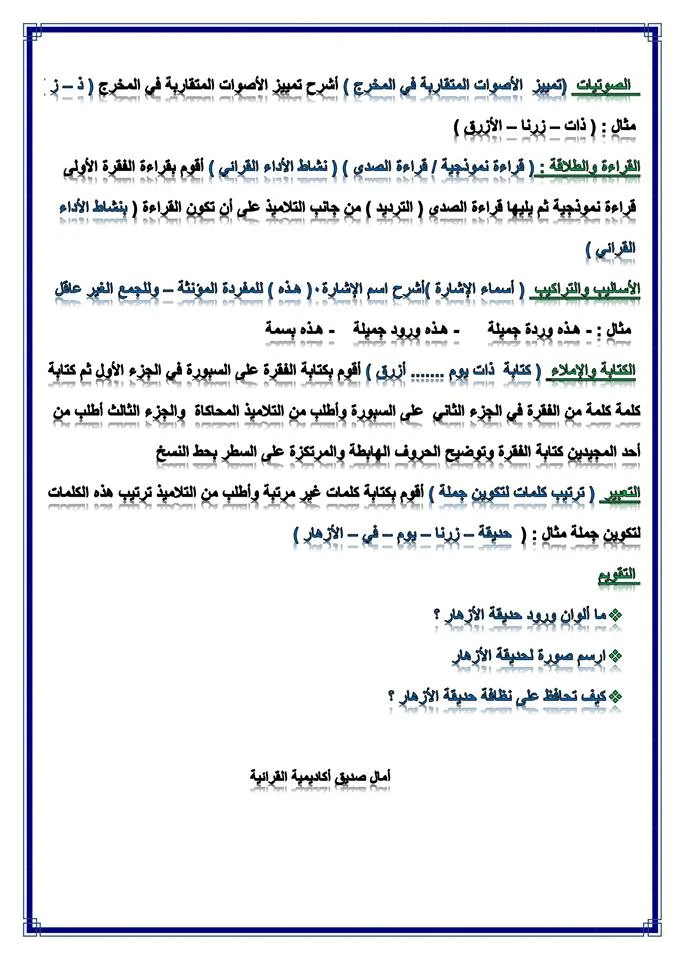 الصوتيات (تمييز الأصوات المتقاربة في المخرج ) أشرح تمييز الأصوات المتقاربة في المخرج ( ذ – ز
مثال : ( ذات – زرنا – الأزرق )
القراءة والطلاقة : ( قراءة نموذجية / قراءة الصدي ) ( نشاط الأداء القرائي ) أقوم بقراءة الفقرة الأولى
قراءة نموذجية ثم يليها قراءة الصدي ( الترديد ) من جانب التلاميذ على أن تكون القراءة ( بنشاط الأداء
القرائي )
الأساليب والتراكيب ( أسماء الإشارة )أشرح اسم الإشارة.( هذه ) للمفردة المؤنثة – وللجمع الغير عاقل
مثال : - هذه وردة جميلة - هذه ورود جميلة - هذه بسمة
الكتابة والإملاء ( كتابة ذات يوم ....... أزرق ) أقوم بكتابة الفقرة على السبورة في الجزء الأول ثم كتابة
كلمة كلمة من الفقرة في الجزء الثاني على السبورة وأطلب من التلاميذ المحاكاة والجزء الثالث أطلب من
أحد المجيدين كتابة الفقرة وتوضيح الحروف الهابطة والمرتكزة على السطر بحط النسخ
التعبير ( ترتيب كلمات لتكوين جملة ) أقوم بكتابة كلمات غير مرتبة وأطلب من التلاميذ ترتيب هذه الكلمات
لتكوين جملة مثال : ( حديقة – زرنا – يوم – في – الأزهار )
التقويم
❖ ما ألوان ورود حديقة الأزهار ؟
❖ ارسم صورة لحديقة الأزهار
❖ كيف تحافظ على نظافة حديقة الأزهار ؟
أمال صديق أكاديمية القرائية